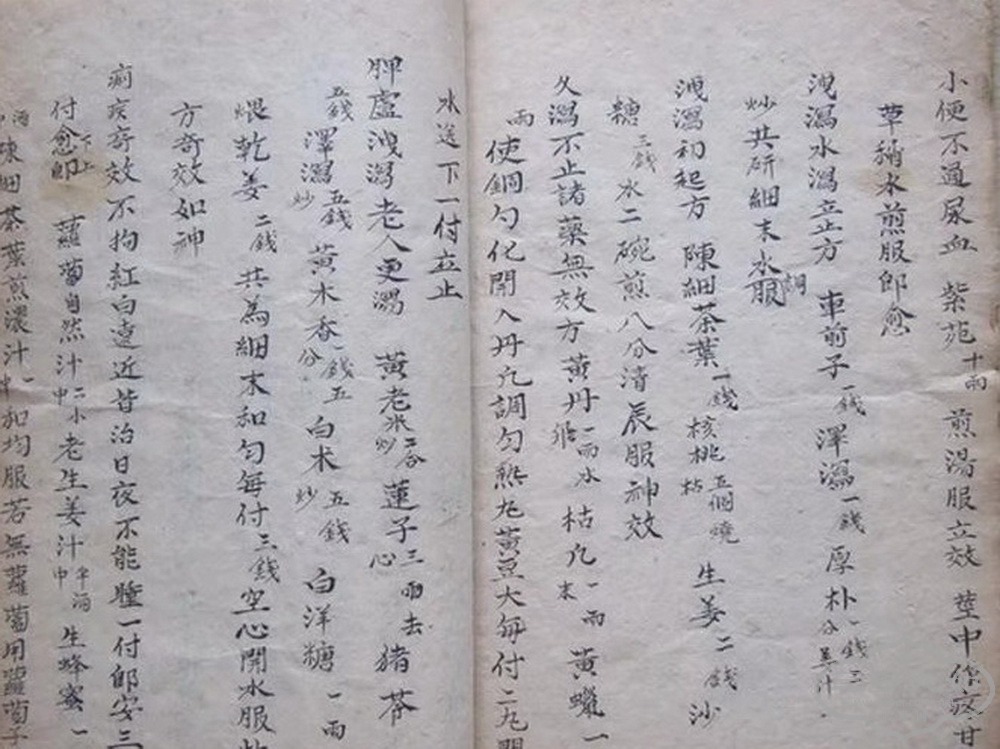 小便不通尿血 紫苑十兩 煎湯服立效 莖中作疼甘
草稍水煎服即愈
洩瀉水瀉立方 車前子一錢 澤瀉一錢 厚朴一錢三分姜汁
炒共研細末水調服
洩瀉初起方 陳細茶葉一錢 核桃五個燒枯 生姜二錢 沙
糖三錢 水二碗煎八分清辰服神效
久瀉不止諸藥無效方 黃丹一兩水飛 枯凡一兩末 黃蠟一
兩 使銅勺化開入丹凡調勻熱丸黃豆大每付二九開
水送下一付立止
脾虛洩瀉老人更瀉 黃老米二合炒 蓮子三兩去心 豬苓
五錢 澤瀉五錢炒 黃木香一錢五分 白术五錢炒 白洋糖一兩
煨乾姜二錢 共為細末和勻每付三錢空心開水服
方奇效如神
痢疾奇效不拘紅白遠近皆治日夜不能睡一付即安三
付愈即 蘿蔔自然汁二小中 老生姜汁半酒中 生蜂蜜一
陳細茶葉煎濃汁一中和均服若無蘿蔔用蘿蔔子